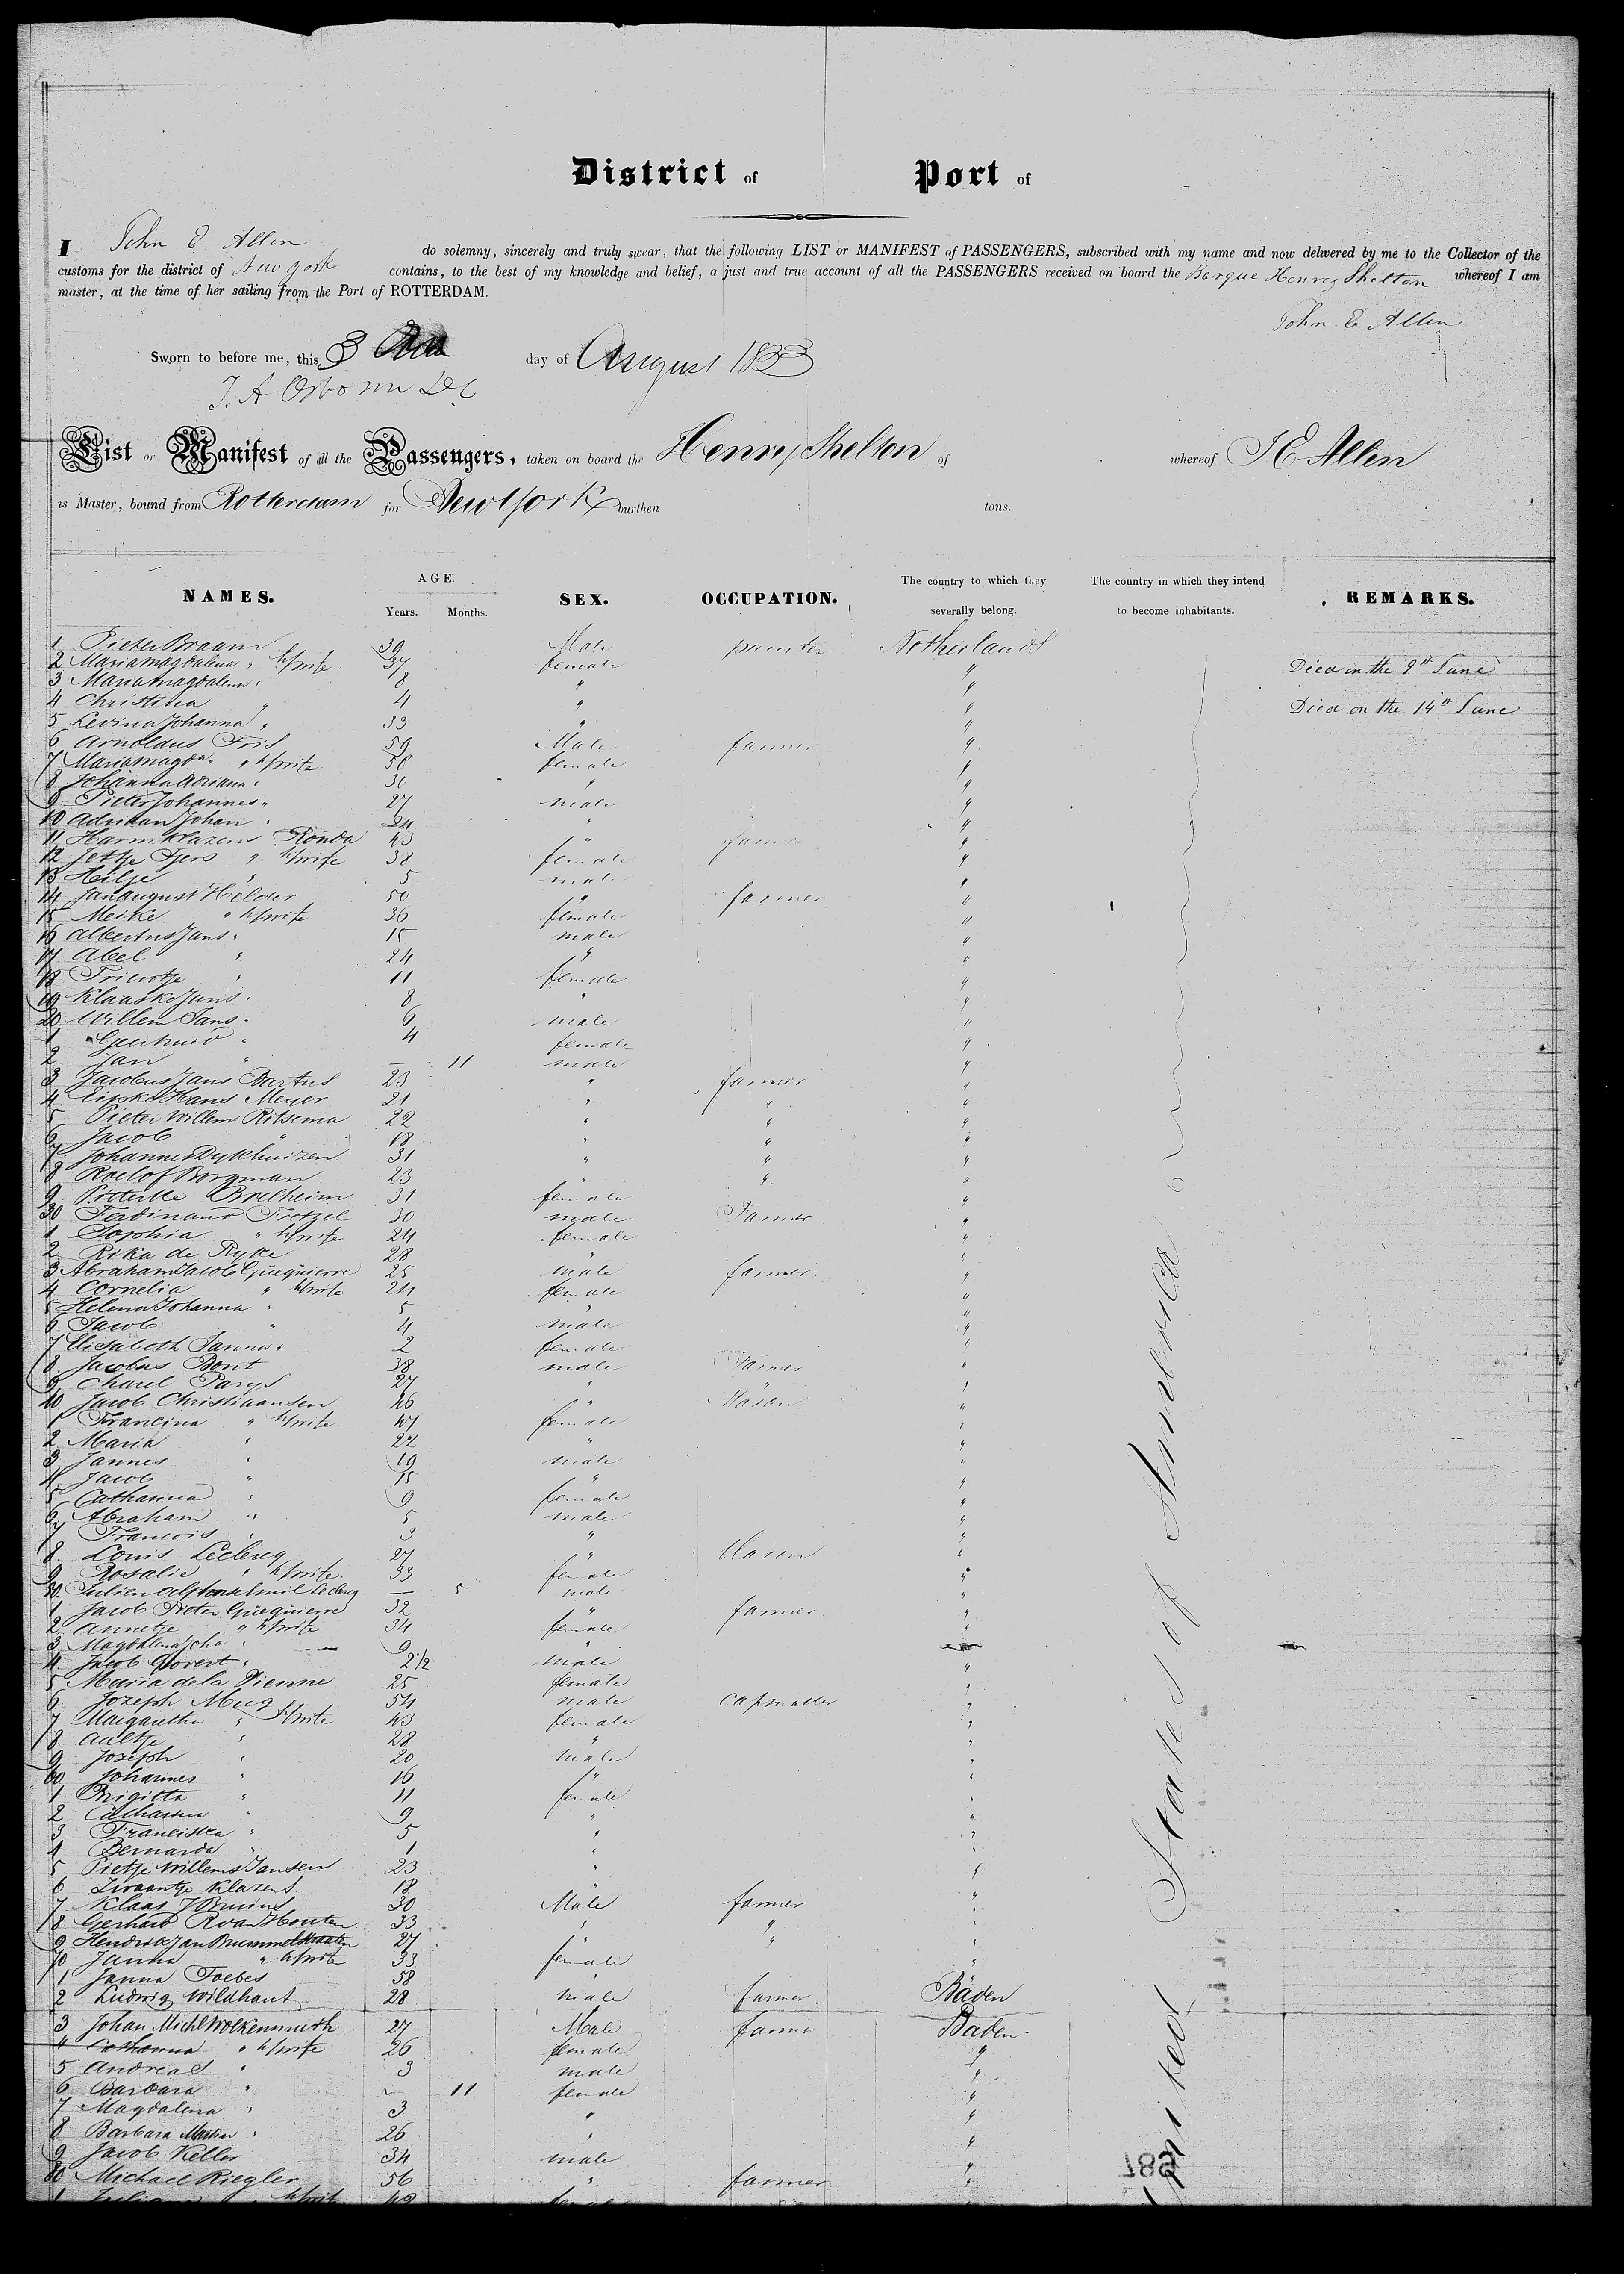 District of Port of
I John E Allen do solemny, sincerely and truly swear, that the following LIST or MANIFEST of PASSENGERS, subscribed with my name and now delivered by me to the Collector of the
customs for the district of New York contains, to the best of my knowledge and belief, a just and true account of all the PASSENGERS received on board the Barque Henry Shelton whereof I am
master, at the time of her sailing from the Port of ROTTERDAM.
John E Allen
Sworn to before me, this 3 day of August 1853
J. A Osborn
List or Manifest of all the Passengers, taken on board the Henry Shelton of whereof J E Allen
is Master, bound from Rotterdam for New York burthen tons.
NAMES. AGE. Years. Months. SEX. OCCUPATION. The country to which they severally belong. The country in which they intend to become inhabitants. REMARKS.
1 Pieter Braam 39 Male painter Netherlands
2 Mariamagdalena " h/wife 37 female " Died on the 9th June
3 Mariamagdalena " 8 " "
4 Christina " 4 " " Died on the 14th June
5 Levina Johanna " 33 " "
6 Arnoldus Fris 59 Male farmer "
7 Mariamagda. " h/wife 58 female "
8 Johanna Adriana " 30 " "
9 Pieter Johannes " 27 male "
10 Adriaan Johan " 24 " "
11 Harm Klazens Ronda 43 " farmer "
12 Jetje Tjers " h/wife 38 female "
13 Hilje " 5 male "
14 Jan August Helder 50 " farmer "
15 Meike " h/wife 36 female "
16 Albertus Jans " 15 male "
17 Abel " 24 " "
18 Trientje " 11 female "
19 Klaaske Jans " 8 " "
20 Willem Jans " 6 male "
1 Geertruid " 4 female "
2 Jan " — 11 male "
3 Jacobus Jans Bartus 23 " farmer "
4 Eipke Hans Meyer 21 " " "
5 Pieter Willem Ritsema 22 " " "
6 Jacob " 18 " " "
7 Johannes Dykhuizen 31 " " "
8 Roelof Borgman 23 " " "
9 Pieternelle Brelheim 31 female "
30 Ferdinand Frotzel 30 male Farmer "
1 Sophia " h/wife 24 female "
2 Rika de Ryke 28 " "
3 Abraham Jacob Guequierre 25 male farmer "
4 Cornelia " h/wife 24 female "
5 Helena Johanna " 5 " "
6 Jacob " 4 male "
7 Elisabeth Janna " 2 female "
8 Jacobus Bont 38 male Farmer "
9 Charel Parys 27 " "
40 Jacob Christiaansen 46 " Mason "
1 Francina " h/wife 47 female "
2 Maria " 22 " "
3 Jannes " 19 male "
4 Jacob " 15 " "
5 Catharina " 9 female "
6 Abraham " 5 male "
7 Francois " 3 " "
8 Louis Leclercq 27 " Mason "
9 Rosalie " h/wife 33 female "
50 Julien Alphonse Emil Leclercq — 5 male "
1 Jacob Pieter Guequierre 32 " farmer "
2 Annetje " h/wife 34 female "
3 Magdalena Joha " 9 "
4 Jacob Govert " 2 1/2 male "
5 Maria de la Vienne 25 female "
6 Jozeph Mug 54 male capmaker "
7 Margaretha " h/wife 43 female "
8 Aaltje " 28 " "
9 Jozeph " 20 male "
60 Johannes " 16 " "
1 Brigitta " 11 female "
2 Catharina " 9 " "
3 Franciska " 5 " "
4 Bernarda " 1 " "
5 Pietje Willems Jansen 23 " "
6 Zwaantje Klazens 18 " "
7 Klaas J Bruins 30 Male farmer "
8 Gerhard R van Houten 33 " " "
9 Hendrik Jan Brummelstraaten 27 " " "
70 Janna " h/wife 33 female "
1 Janna Foebes 58 " "
2 Ludwig Wildhaut 28 male farmer Baden
3 Johan Michl Wolkenmuth 27 Male farmer Baden
4 Catharina " h/wife 26 female "
5 Andreas " 3 male "
6 Barbara " — 11 female "
7 Magdalena " 3 " "
8 Barbara " 26 " "
9 Jacob Keller 34 male "
80 Michael Riegler 56 " farmer "
1 Juliana " h/wife 42 female
United States of America